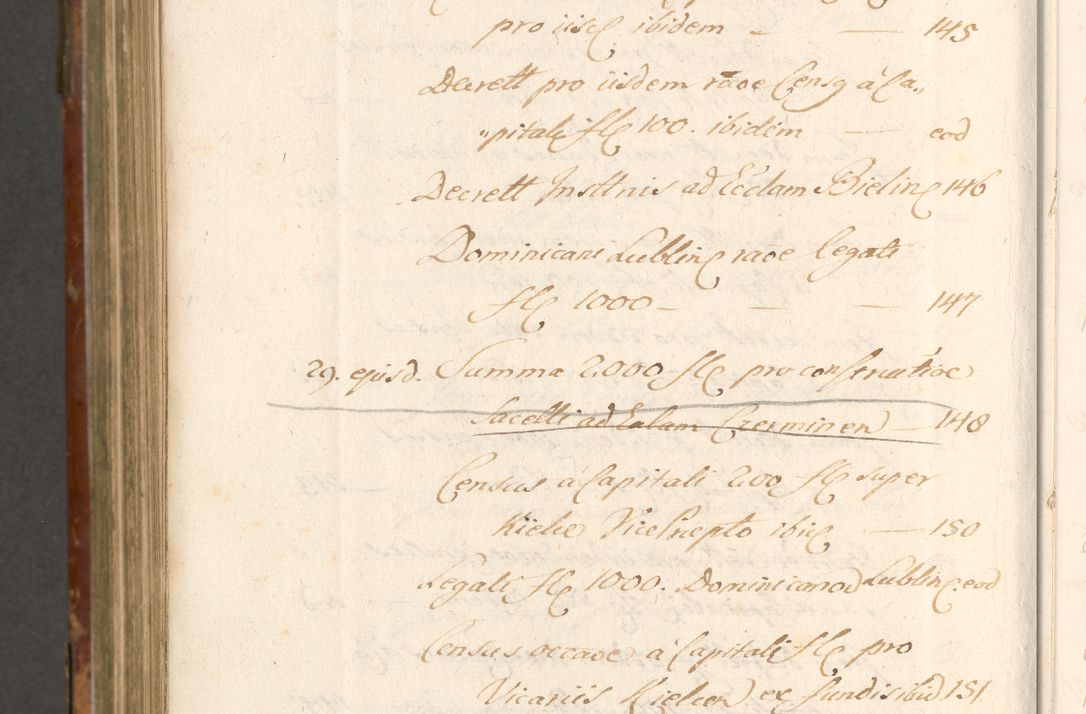 pro iisd ibidem – — 145
Decrett pro iisdem raõe Censq á Ca„
„pitali fl 100. ibidem — eod
Decrett Insttnis ad Ecclam Bielin 146
Dominicani Lublin raõe legati
fl 1000 – — — 147
29. ejusd. Summa 2000 fl pro constructioe
Sacelli ad Eclam Czerminen — 148
Census á Capitali 200 fl super
Kielie ibid — 150
Legati fl 1000. Dominicanod Lublin. eod
Census occaoe á Capitali fl pro
Vicariis Kielcen ex fundis ibid 151